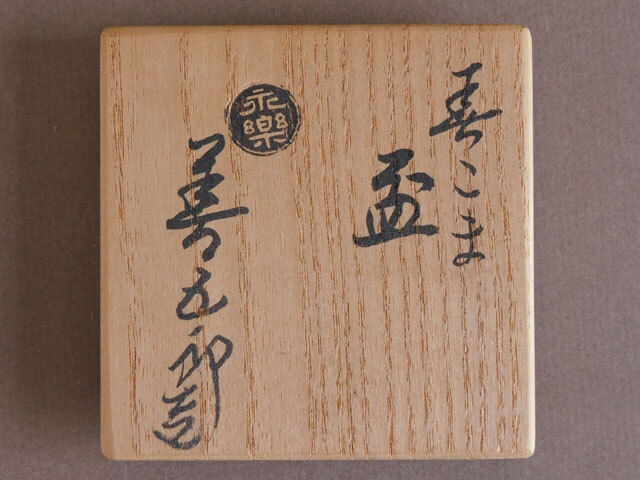 春こま
盃
永樂
善五郎造